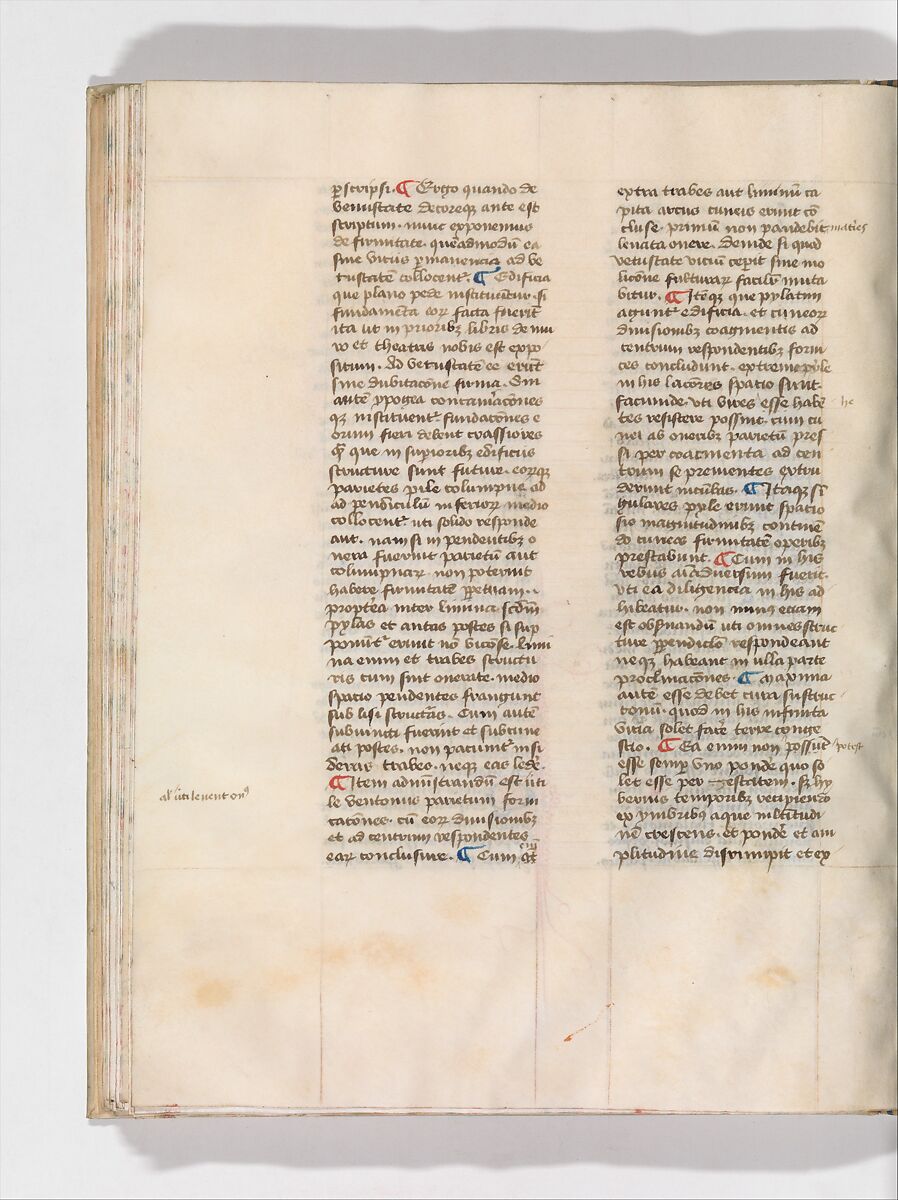 ꝑscripsi. ¶ Ergo quando de
venustate decoreqꝫ ante est
scriptum. nunc exponemus
de firmitate. quẽadmodũ ea
sine vicijs ꝑmanencia ad ve
tustatẽ collocent᷑. ¶ Edificia
que plano pede instituũtur. si
fundamẽta eoꝝ facta fuerit̃
ita ut in prioribꝫ libris de mu
ro et theatris nobis est expo
situm. Ad vetustatẽ ee erũt
sine dubitacõne firma. Sin
autẽ ypogea concamaracõnes
qꝫ instituent᷑ fundacõnes e
orum fieri debent crassiores
q̃ que in suꝑioribꝫ edificijs
structure sunt future. eorqꝫ
parietes pile columpne ad
ad pendiculũ inferioꝝ medio
collocent᷑ uti solido responde
ant. nam si in pendentibꝫ o
nera fuerint parietũ aut
columpnaꝝ. non poterint
habere firmitatẽ ꝑpetuam.
propt̃ea inter limina scdm̃
pylas et antas postes si supp
ponũt᷑ erunt nõ viciose. Limi
na enim et trabes structu
ris cum sint onerate. medio
spacio pendentes frangunt
sub lisi structũas. Cum autẽ
subiuncti fuerint et subcune
ati postes. non paciunt᷑ insi
derais trabes. neqꝫ eas ledẽ.
¶ Item adm̃istrandũ est uti
le ventonus parietum form
cacões. cũ eoꝝ diuisionibꝫ
et ad centrum respondentes
eaꝝ conclusure. ¶ Cum em̃ q̃
al' uti leuent on9
extra trabes aut liminũ ca
pita arcus cuneis erunt cõ
cluse. primũ non pandebit maties
leuata onere. Deinde si quod
vetustate viciũ ceperit sine mo
licõne fulturaꝝ facilũ muta
bitur. ¶ Itẽqꝫ que pylatim
agunt᷑ edificia. et cuneoꝝ
diuisionibꝫ coagmentis ad
centrum respondentibꝫ forni
ces concludunt. extreme pyle
in his laciores spacio sunt
faciunde. vti vires esse habẽ he
tes resistere possint. cum cu
nei ab oneribꝫ parietũ pres
si per coacmenta ad cen
trum se prementes extru
derunt incũbas. ¶ Itaqꝫ si
gulares pyle erunt spacio
sio magnitudinibꝫ continẽ
do cuneos firmitatẽ operibꝫ
prestabunt. ¶ Cum in his
rebus aĩaduersum fuerit.
vti ea diligencia in his ad
hibeatur. non minꝰ eciam
est obseruandũ uti omnes struc
ture ꝑpendiclõ respondeant
neqꝫ habeant in ulla parte
proclinacõnes. ¶ Maxima
autẽ esse debet cura sustruc
tionũ. quod in his infinita
vicia solet facẽ terre conge
stio. ¶ Ea enim non possũt potest
esse semꝑ vno ponde quo so
let esse per estatem. sꝫ hy
bernis temporibꝫ recipiendo
ex ymbribus aque mltitudi
nẽ crescens. et pondẽ et am
plitudine disrumpit et ex